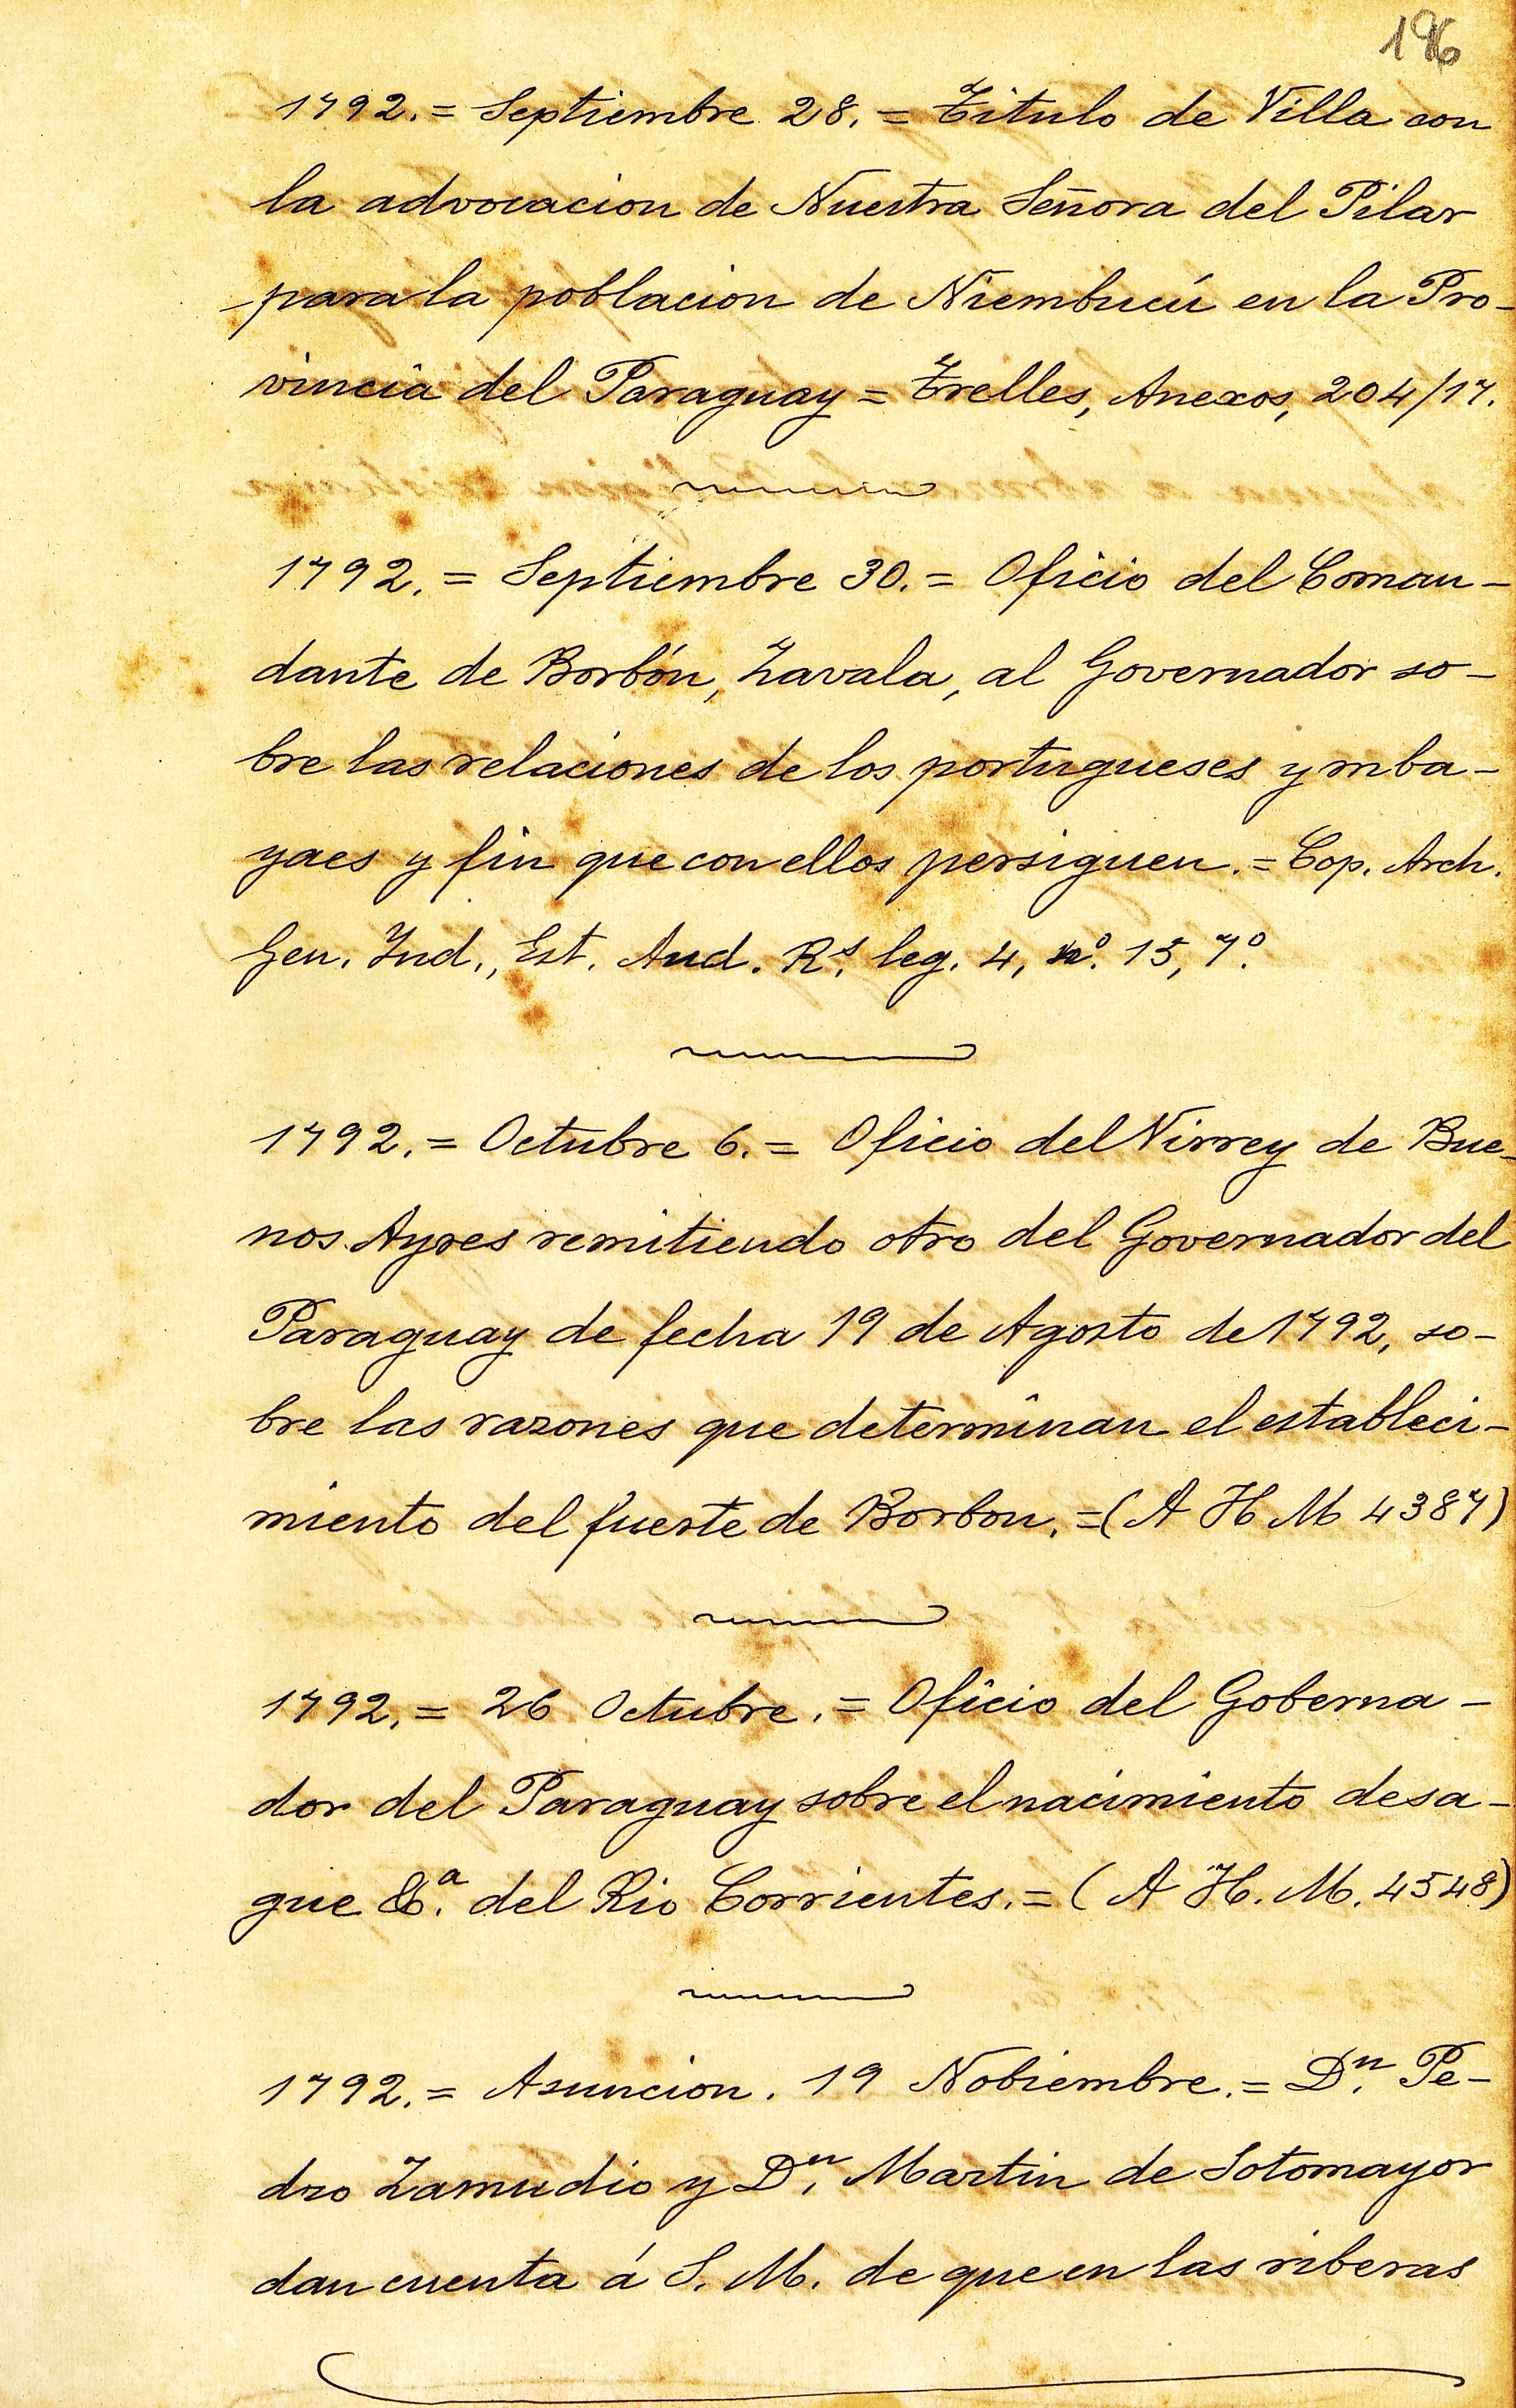 196
1792.= Septiembre 28.= Titulo de Villa con
la advocacion de Nuestra Señora del Pilar
para la poblacion de Niembucú en la Pro-
vincia del Paraguay = Trelles, Anexos, 204/17.
1792.= Septiembre 30.= Oficio del Coman-
dante de Borbón, Zavala, al Governador so-
bre las relaciones de los portugueses y mba-
yaes y fin que con ellos persiguen.= Cop. Arch.
Gen. Ind., Est. Aud. Rs. leg. 4, nº. 15, 7º.
1792.= Octubre 6.= Oficio del Virrey de Bue-
nos Ayres remitiendo otro del Governador del
Paraguay de fecha 19 de Agosto de 1792, so-
bre las razones que determinan el estableci-
miento del fuerte de Borbon.=(A H M 4387)
1792.= 26 Octubre.= Oficio del Goberna-
dor del Paraguay sobre el nacimiento desa-
gue &ª. del Rio Corrientes.= (A H. M. 4548)
1792.= Asuncion. 19 Nobiembre.= Dn. Pe-
dro Zamudio y Dn. Martin de Sotomayor
dan cuenta á S. M. de que en las riberas